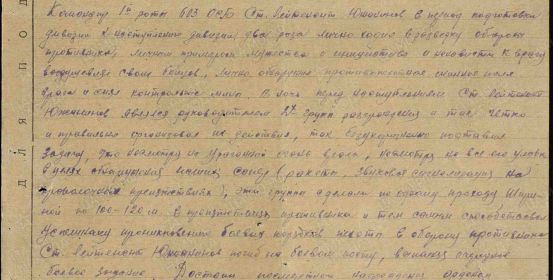 Командир 1й роты 613 ОСБ Ст. Лейтенант Южанинов в период подготовки
дивизии к наступлению дивизии, два раза лично ходил в разведку обороны
противника, личным примером мужества и и ненависти к врагу
воодушевлял своих бойцов, лично обнаружил противопехотные минные поля
врага и снял контрольные мины. В ночь перед наступлением Ст. Лейтенант
Южанинов являлся руководителем 2х групп разграждения и так четко
и правильно организовал их действия, так безукоризненно поставил
задачу, что несмотря на ураганный огонь врага, несмотря на все его уловки
сигнализация на
проволочных препятствиях), эти группы сделали по одному проходу шири-
ной по 100-120 м. в препятствиях противника и тем самым способствовали
успешному проникновению боевых порядков пехоты в оборону противника
Ст. Лейтенант Южанинов погиб на боевом посту, выполняя очередное
боевое задание. Достоин посмертного награждения орденом
ДЛЯ ПОД